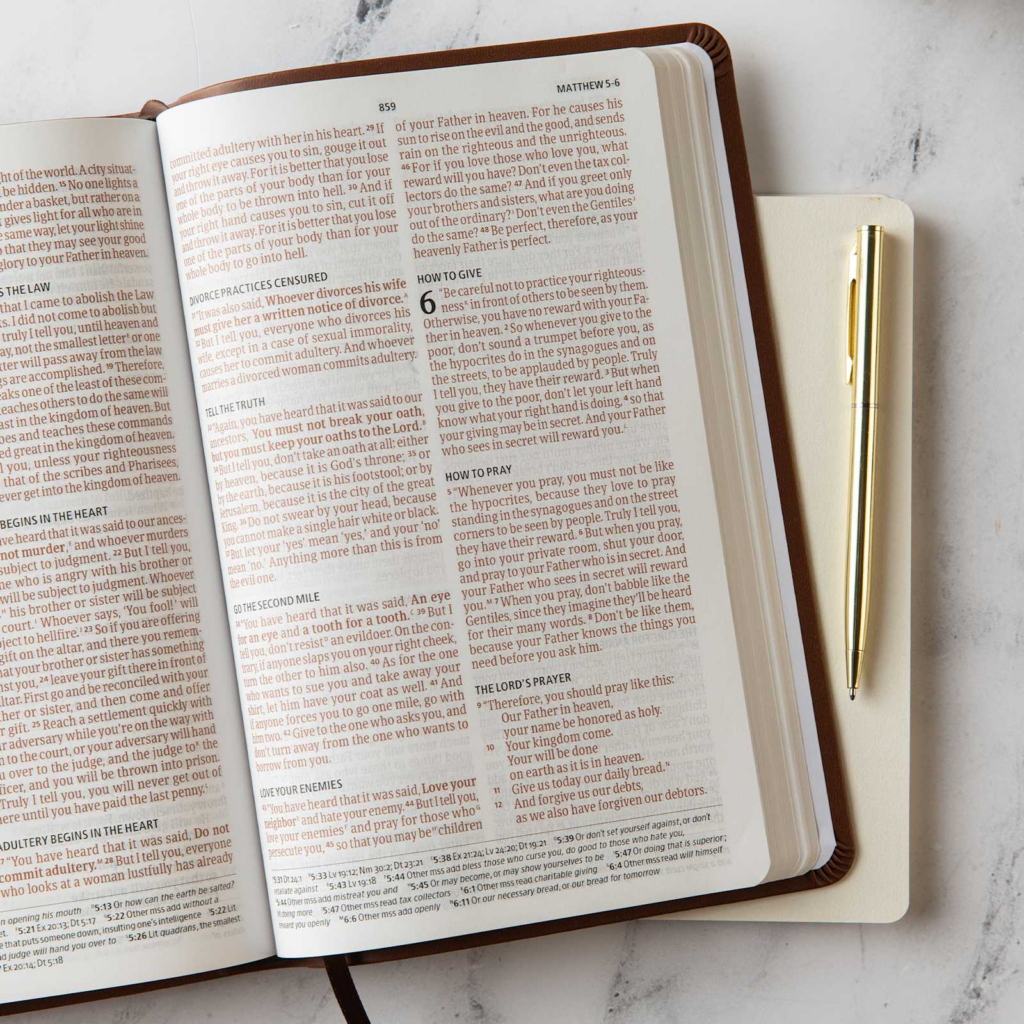 ht of the world. A city situat-
be hidden. 15 No one lights a
nder a basket, but rather on a
gives light for all who are in
same way, let your light shine
o that they may see your good
glory to your Father in heaven.
S THE LAW
that I came to abolish the Law
s. I did not come to abolish but
truly I tell you, until heaven and
ay, not the smallest letter or one
tter will pass away from the law
gs are accomplished. 19 Therefore,
eaks one of the least of these com-
teaches others to do the same will
ast in the kingdom of heaven. But
oes and teaches these commands
ed great in the kingdom of heaven.
l you, unless your righteousness
that of the scribes and Pharisees,
ever get into the kingdom of heaven.
BEGINS IN THE HEART
ve heard that it was said to our ances-
not murder, and whoever murders
subject to judgment. 22 But I tell you,
ne who is angry with his brother or
will be subject to judgment. Whoever
" his brother or sister will be subject
court. Whoever says, 'You fool!' will
ject to hellfire. 23 So if you are offering
gift on the altar, and there you remem-
at your brother or sister has something
nst you, 24 leave your gift there in front of
altar. First go and be reconciled with your
ther or sister, and then come and offer
r gift. 25 Reach a settlement quickly with
r adversary while you're on the way with
to the court, or your adversary will hand
u over to the judge, and the judge to the
ficer, and you will be thrown into prison.
Truly I tell you, you will never get out of
here until you have paid the last penny.
ADULTERY BEGINS IN THE HEART
"You have heard that it was said, Do not
commit adultery. 28 But I tell you, everyone
who looks at a woman lustfully has already
n opening his mouth 5:13 Or how can the earth be salted?
5:21 Ex 20:13; Dt 5:17 5:22 Other mss add without a
e that puts someone down, insulting one's intelligence 5:22 Lit
d judge will hand you over to 5:26 Lit quadrans, the smallest
Ex 20:14; Dt 5:18
859
MATTHEW 5-6
committed adultery with her in his heart. 29 If
your right eye causes you to sin, gouge it out
and throw it away. For it is better that you lose
one of the parts of your body than for your
whole body to be thrown into hell. 30 And if
your right hand causes you to sin, cut it off
and throw it away. For it is better that you lose
one of the parts of your body than for your
whole body to go into hell.
DIVORCE PRACTICES CENSURED
31 "It was also said, Whoever divorces his wife
must give her a written notice of divorce.
32 But I tell you, everyone who divorces his
wife, except in a case of sexual immorality,
causes her to commit adultery. And whoever
marries a divorced woman commits adultery.
TELL THE TRUTH
33 "Again, you have heard that it was said to our
ancestors, You must not break your oath,
but you must keep your oaths to the Lord.
34 But I tell you, don't take an oath at all: either
by heaven, because it is God's throne; 35 or
by the earth, because it is his footstool; or by
Jerusalem, because it is the city of the great
King. 36 Do not swear by your head, because
you cannot make a single hair white or black.
37 But let your 'yes' mean 'yes,' and your 'no'
mean 'no.' Anything more than this is from
the evil one.
GO THE SECOND MILE
38 "You have heard that it was said, An eye
for an eye and a tooth for a tooth. 39 But I
tell you, don't resist an evildoer. On the con-
trary, if anyone slaps you on your right cheek,
turn the other to him also. 40 As for the one
who wants to sue you and take away your
shirt, let him have your coat as well. 41 And
if anyone forces you to go one mile, go with
him two. 42 Give to the one who asks you, and
don't turn away from the one who wants to
borrow from you.
LOVE YOUR ENEMIES
43 "You have heard that it was said, Love your
neighbor and hate your enemy. 44 But I tell you,
love your enemies and pray for those who
persecute you, 45 so that you may be children
of your Father in heaven. For he causes his
sun to rise on the evil and the good, and sends
rain on the righteous and the unrighteous.
46 For if you love those who love you, what
reward will you have? Don't even the tax col-
lectors do the same? 47 And if you greet only
your brothers and sisters, what are you doing
out of the ordinary? Don't even the Gentiles
do the same? 48 Be perfect, therefore, as your
heavenly Father is perfect.
HOW TO GIVE
6 "Be careful not to practice your righteous-
ness in front of others to be seen by them.
Otherwise, you have no reward with your Fa-
ther in heaven. 2 So whenever you give to the
poor, don't sound a trumpet before you, as
the hypocrites do in the synagogues and on
the streets, to be applauded by people. Truly
I tell you, they have their reward. 3 But when
you give to the poor, don't let your left hand
know what your right hand is doing, 4 so that
your giving may be in secret. And your Father
who sees in secret will reward you.
HOW TO PRAY
5 "Whenever you pray, you must not be like
the hypocrites, because they love to pray
standing in the synagogues and on the street
corners to be seen by people. Truly I tell you,
they have their reward. 6 But when you pray,
go into your private room, shut your door,
and pray to your Father who is in secret. And
your Father who sees in secret will reward
you. 7 When you pray, don't babble like the
Gentiles, since they imagine they'll be heard
for their many words. 8 Don't be like them,
because your Father knows the things you
need before you ask him.
THE LORD'S PRAYER
9 "Therefore, you should pray like this:
Our Father in heaven,
your name be honored as holy.
10 Your kingdom come.
Your will be done
on earth as it is in heaven.
11 Give us today our daily bread.
12 And forgive us our debts,
as we also have forgiven our debtors.
5:31 Dt 24:1 5:33 Lv 19:12; Nm 30:2; Dt 23:21 5:38 Ex 21:24; Lv 24:20; Dt 19:21 5:39 Or don't set yourself against, or don't
retaliate against 5:43 Lv 19:18 5:44 Other mss add bless those who curse you, do good to those who hate you,
5:44 Other mss add mistreat you and 5:45 Or may become, or may show yourselves to be 5:47 Or doing that is superior;
5:47 Other mss read tax collectors 6:1 Other mss read charitable giving 6:4 Other mss read will himself
reward you openly 6:6 Other mss add openly 6:11 Or our necessary bread, or our bread for tomorrow